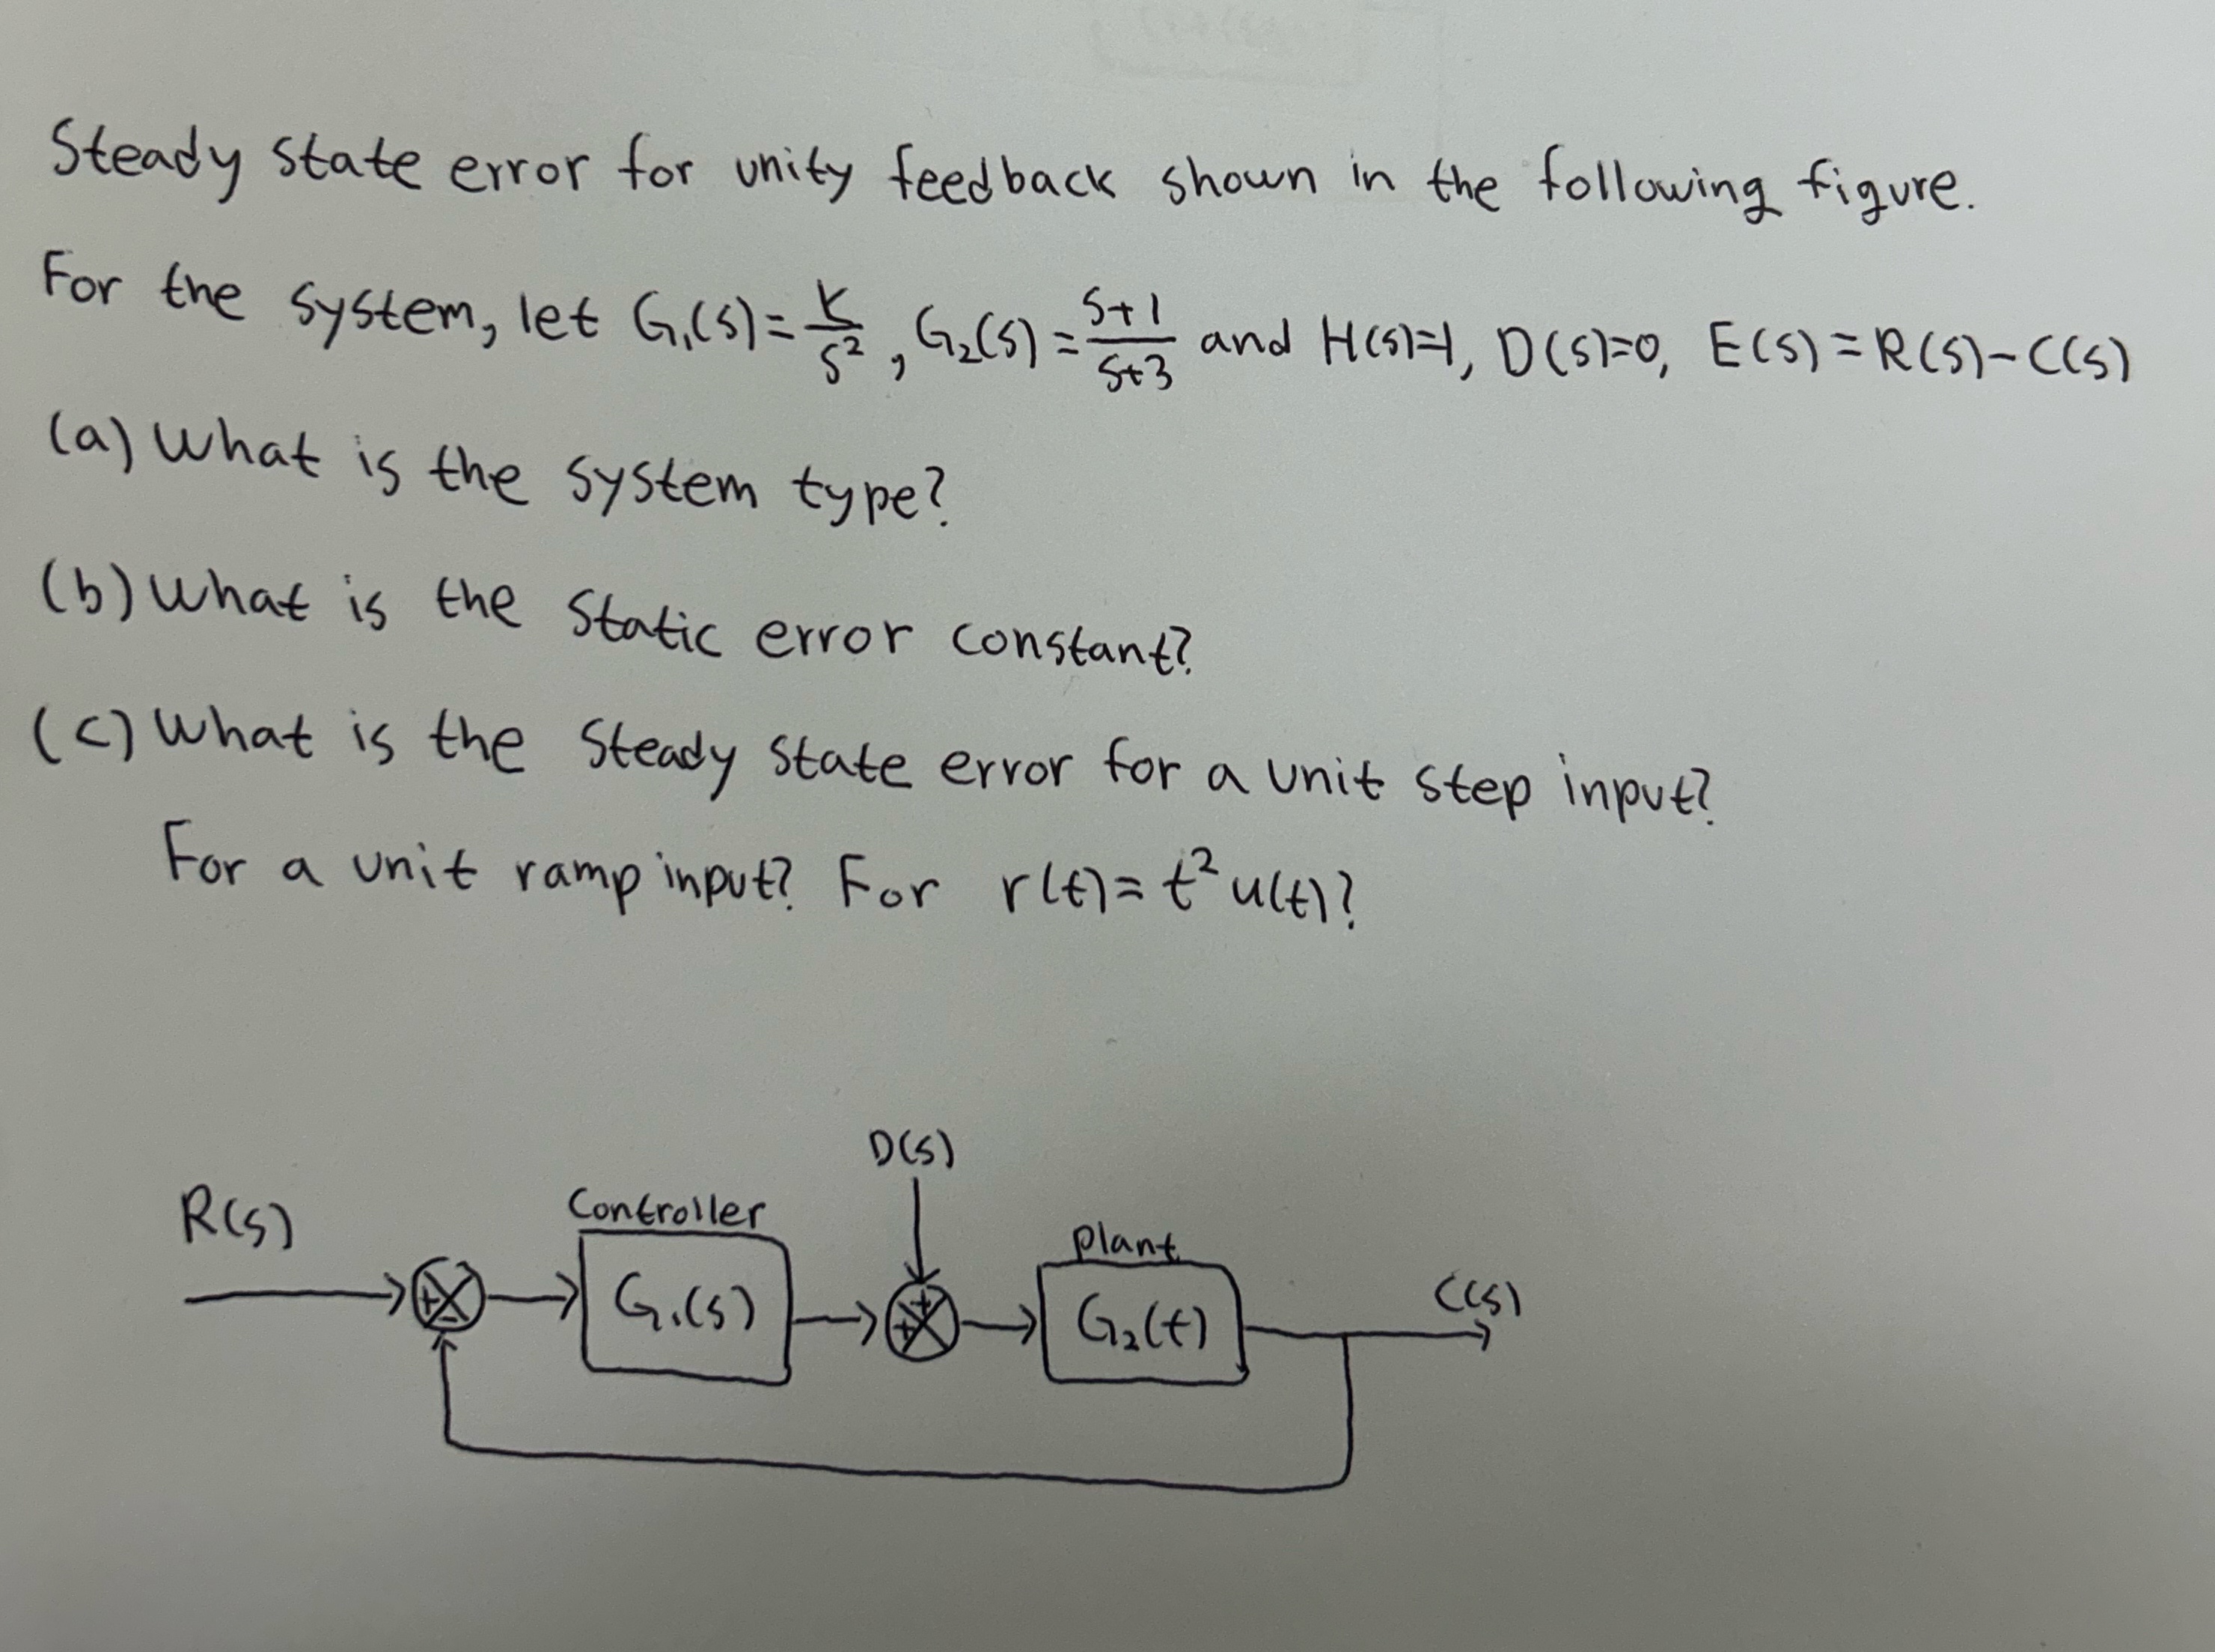 Steady state error for unity feedback shown in the following figure.
For the system, let G₁(s)=K/s², G₂(s)=s+1/s+3 and H(s)=1, D(s)=0, E(s)=R(s)-C(s)
(a) What is the system type?
(b) What is the static error constant?
(c) What is the steady state error for a unit step input?
For a unit ramp input? For r(t)=t²u(t)?
D(s)
R(s)
Controller
plant
C(s)
+
-
G₁(s)
+
+
G₂(t)